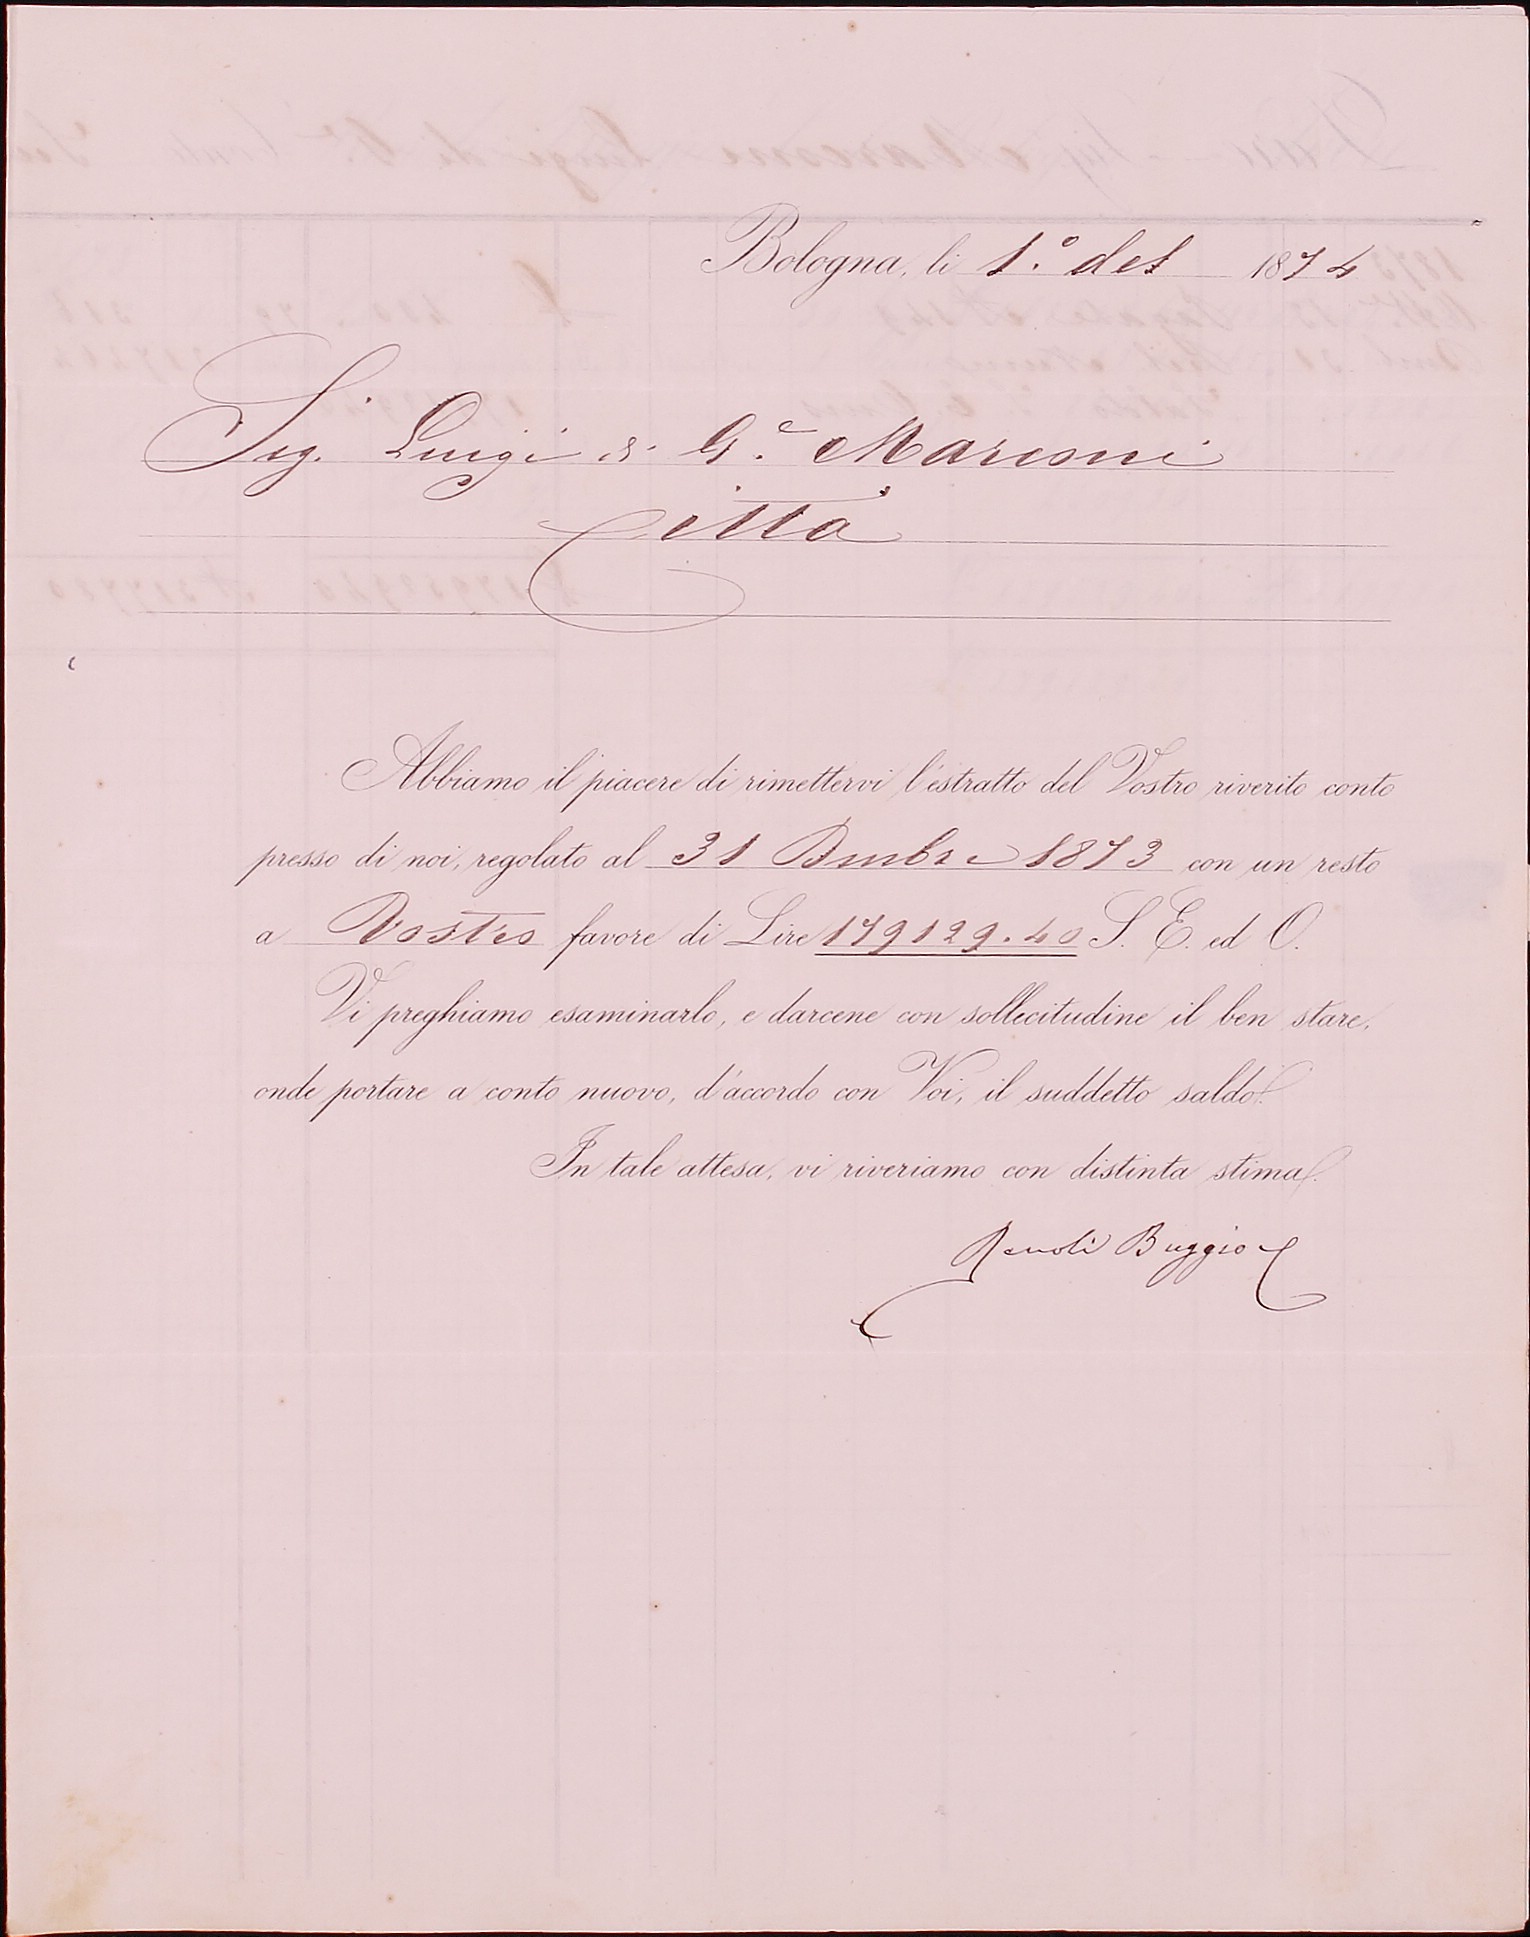 Bologna, li 1.° del 1874
Sig. Luigi di G.e Marconi
Città
Abbiamo il piacere di rimettervi l'estratto del Vostro riverito conto
presso di noi, regolato al 31 Dmbre 1873 con un resto
a Vostro favore di Lire 179129.40 S. E. ed O.
Vi preghiamo esaminarlo, e darcene con sollecitudine il ben stare,
onde portare a conto nuovo, d'accordo con Voi, il suddetto saldo.
In tale attesa, vi riveriamo con distinta stima.
Renoli Buggio